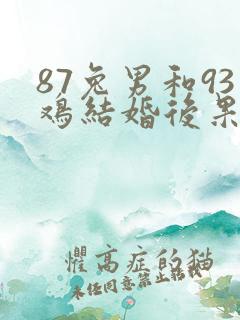 87兔男和93
鸡結婚後果
懼高症的猫
未任同意禁止轉載